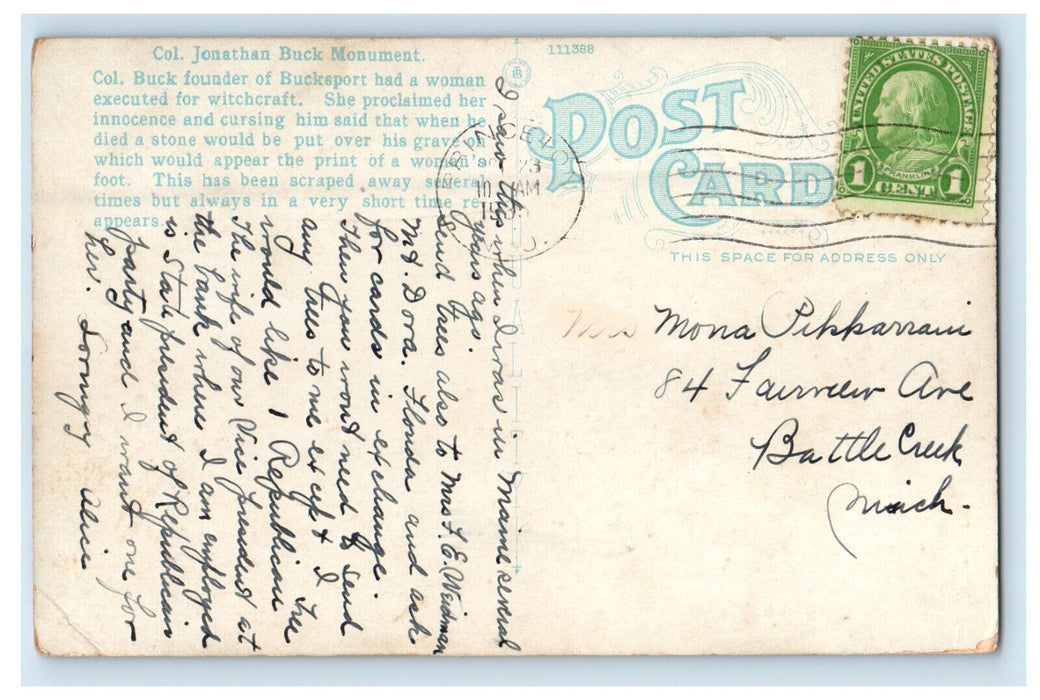 Col. Jonathan Buck Monument.
Col. Buck founder of Bucksport had a woman
executed for witchcraft. She proclaimed her
innocence and cursing him said that when he
died a stone would be put over his grave on
which would appear the print of a woman's
foot. This has been scraped away several
times but always in a very short time re-
appears.
111388
POST
CARD
THIS SPACE FOR ADDRESS ONLY
UNITED STATES POSTAGE
FRANKLIN
1 CENT 1
PRINCETON
23
10 AM
N.J.
I saw this when I was in Maine several
years ago.
Send Trees also to Mrs F. E. Weidman
Mt. Dora. Florida and ask
for cards in exchange.
Then you wont need to send
any Trees to me except I
would like 1 Republican Tree
The wife of our Vice president at
the bank where I am employed
is State president of Republican
party and I want one for
her.
Alice
Mrs Mona Pikkarrain
84 Fairview Ave
Battle Creek
Mich.